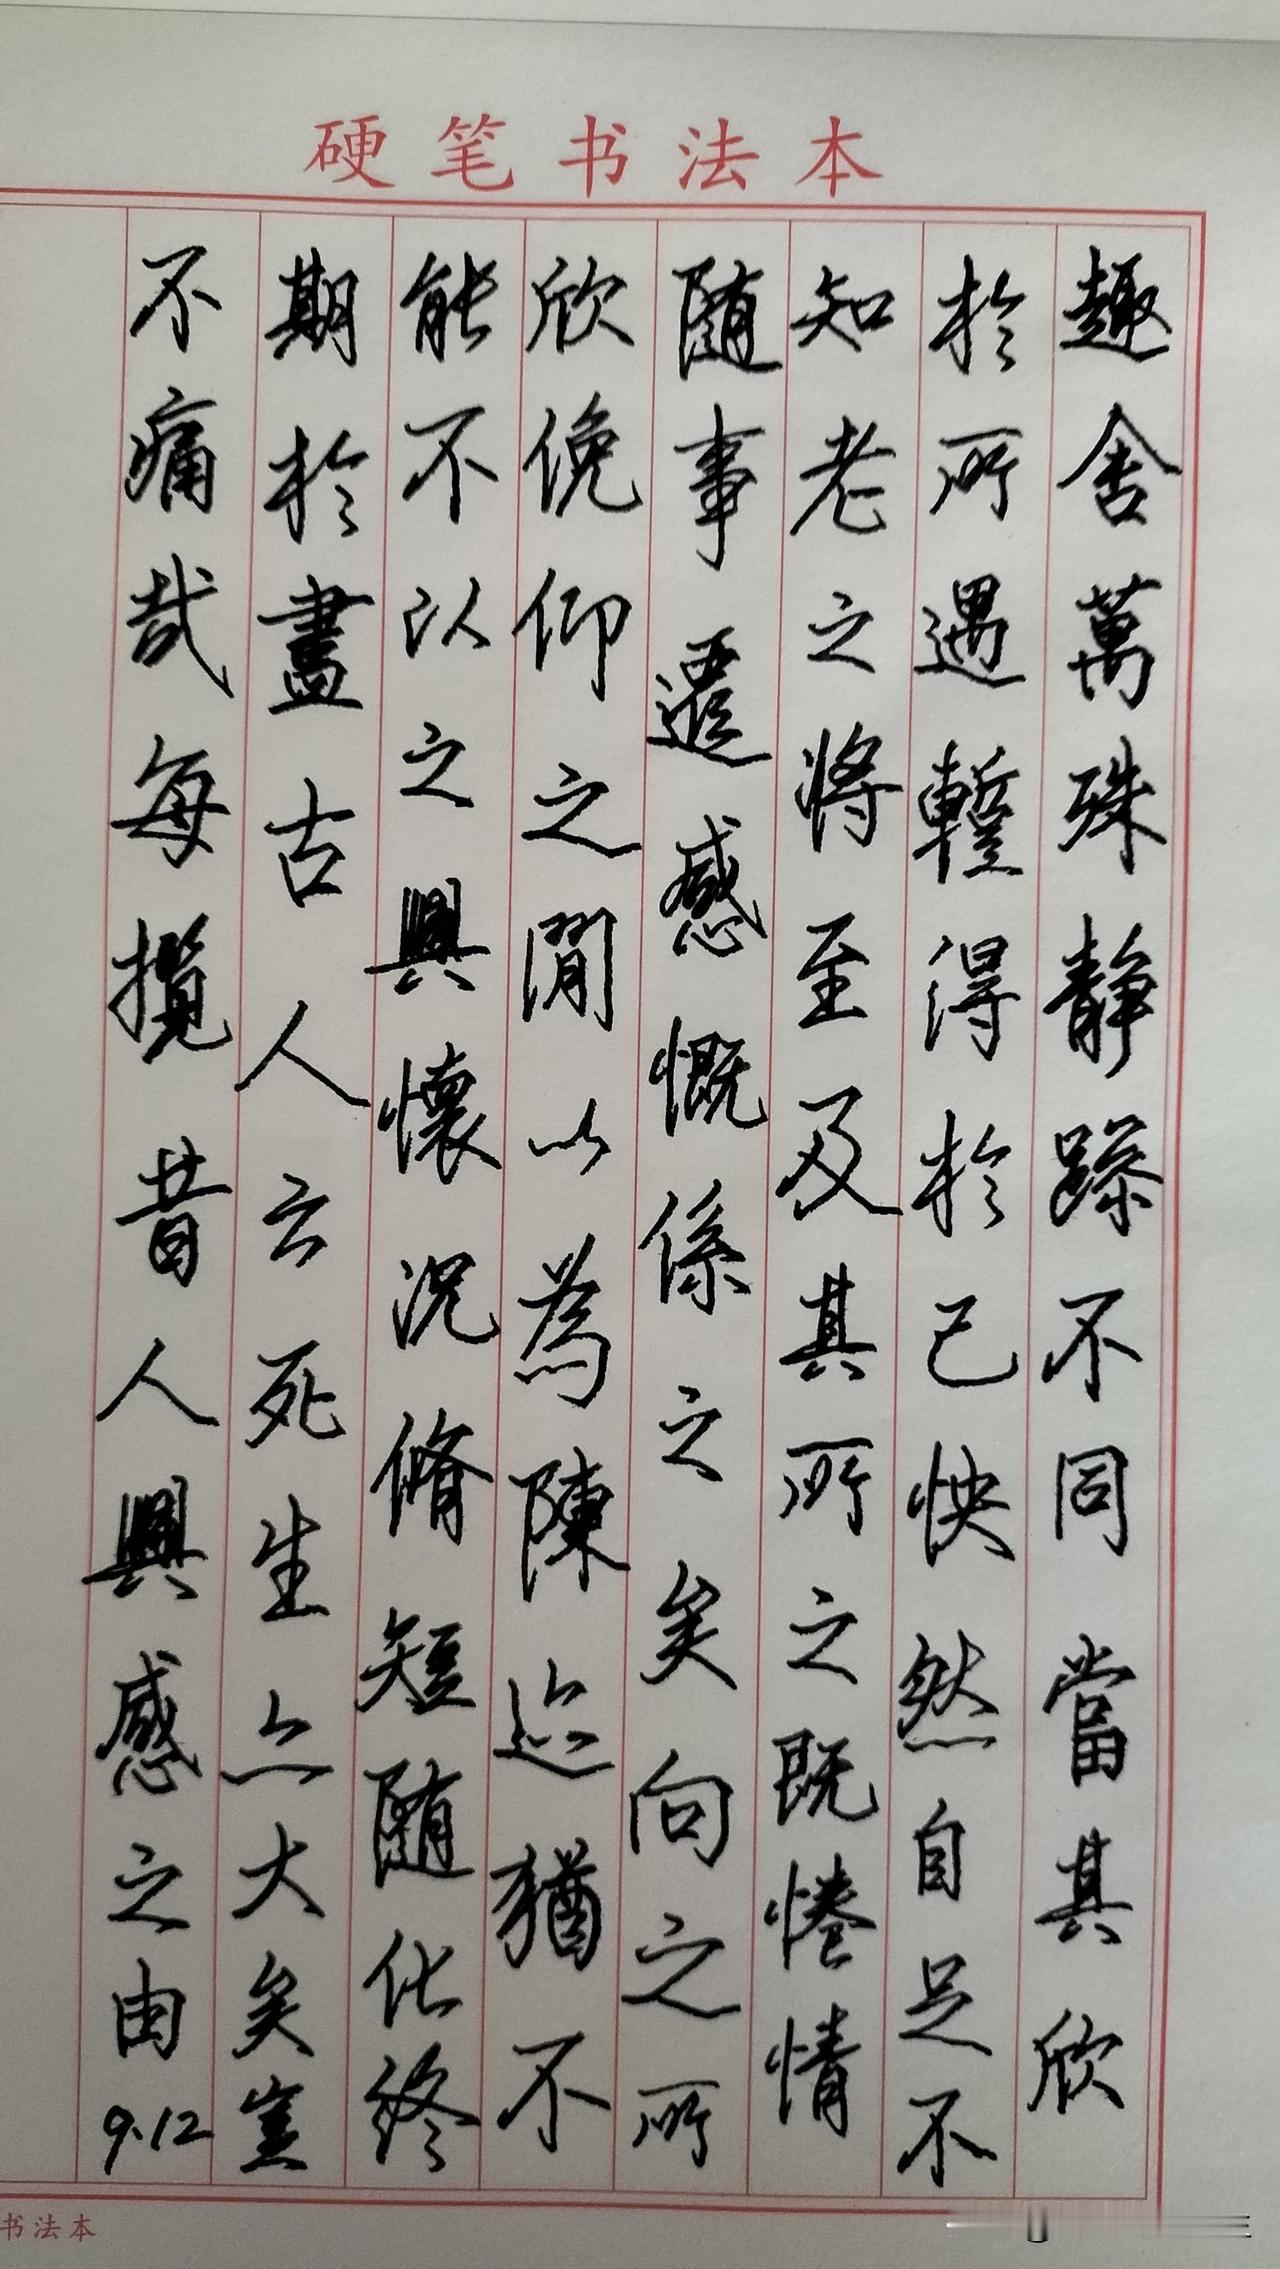 硬笔书法本
趣舍萬殊静躁不同當其欣
於所遇蹔得於己怏然自足不
知老之将至及其所之既惓情
随事遷感慨係之矣向之所
欣俛仰之閒以為陳迹猶不
能不以之興懷況脩短随化終
期於盡古人云死生亦大矣豈
不痛哉每攬昔人興感之由
9.12
书法本